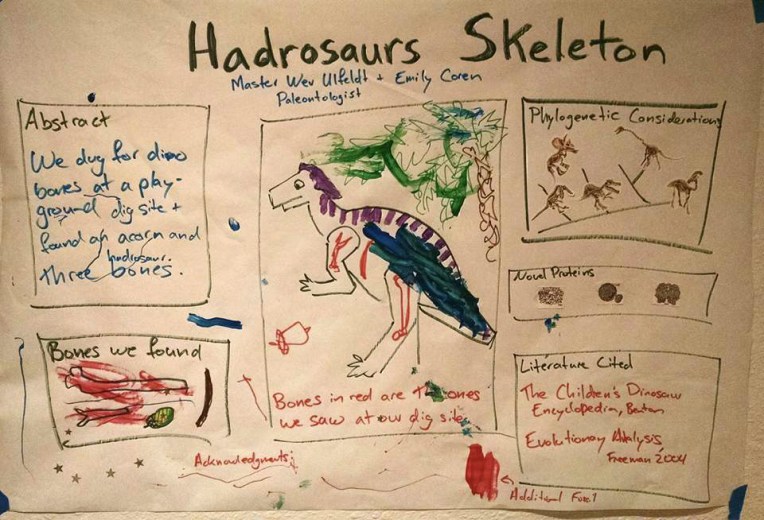 Hadrosaurs Skeleton
Master Wev Ulfeldt + Emily Coren
Paleontologist
Abstract
We dug for dino
bones at a play-
ground dig site +
found an acorn and
hadrosaur
three bones.
Bones we found
Bones in red are the bones
we saw at our dig site
Acknowledgments:
Phylogenetic Considerations
Novel Proteins
Literature Cited
The Children's Dinosaur
Encyclopedia, Benton
Evolutionary Analysis
Freeman 2004
Additional